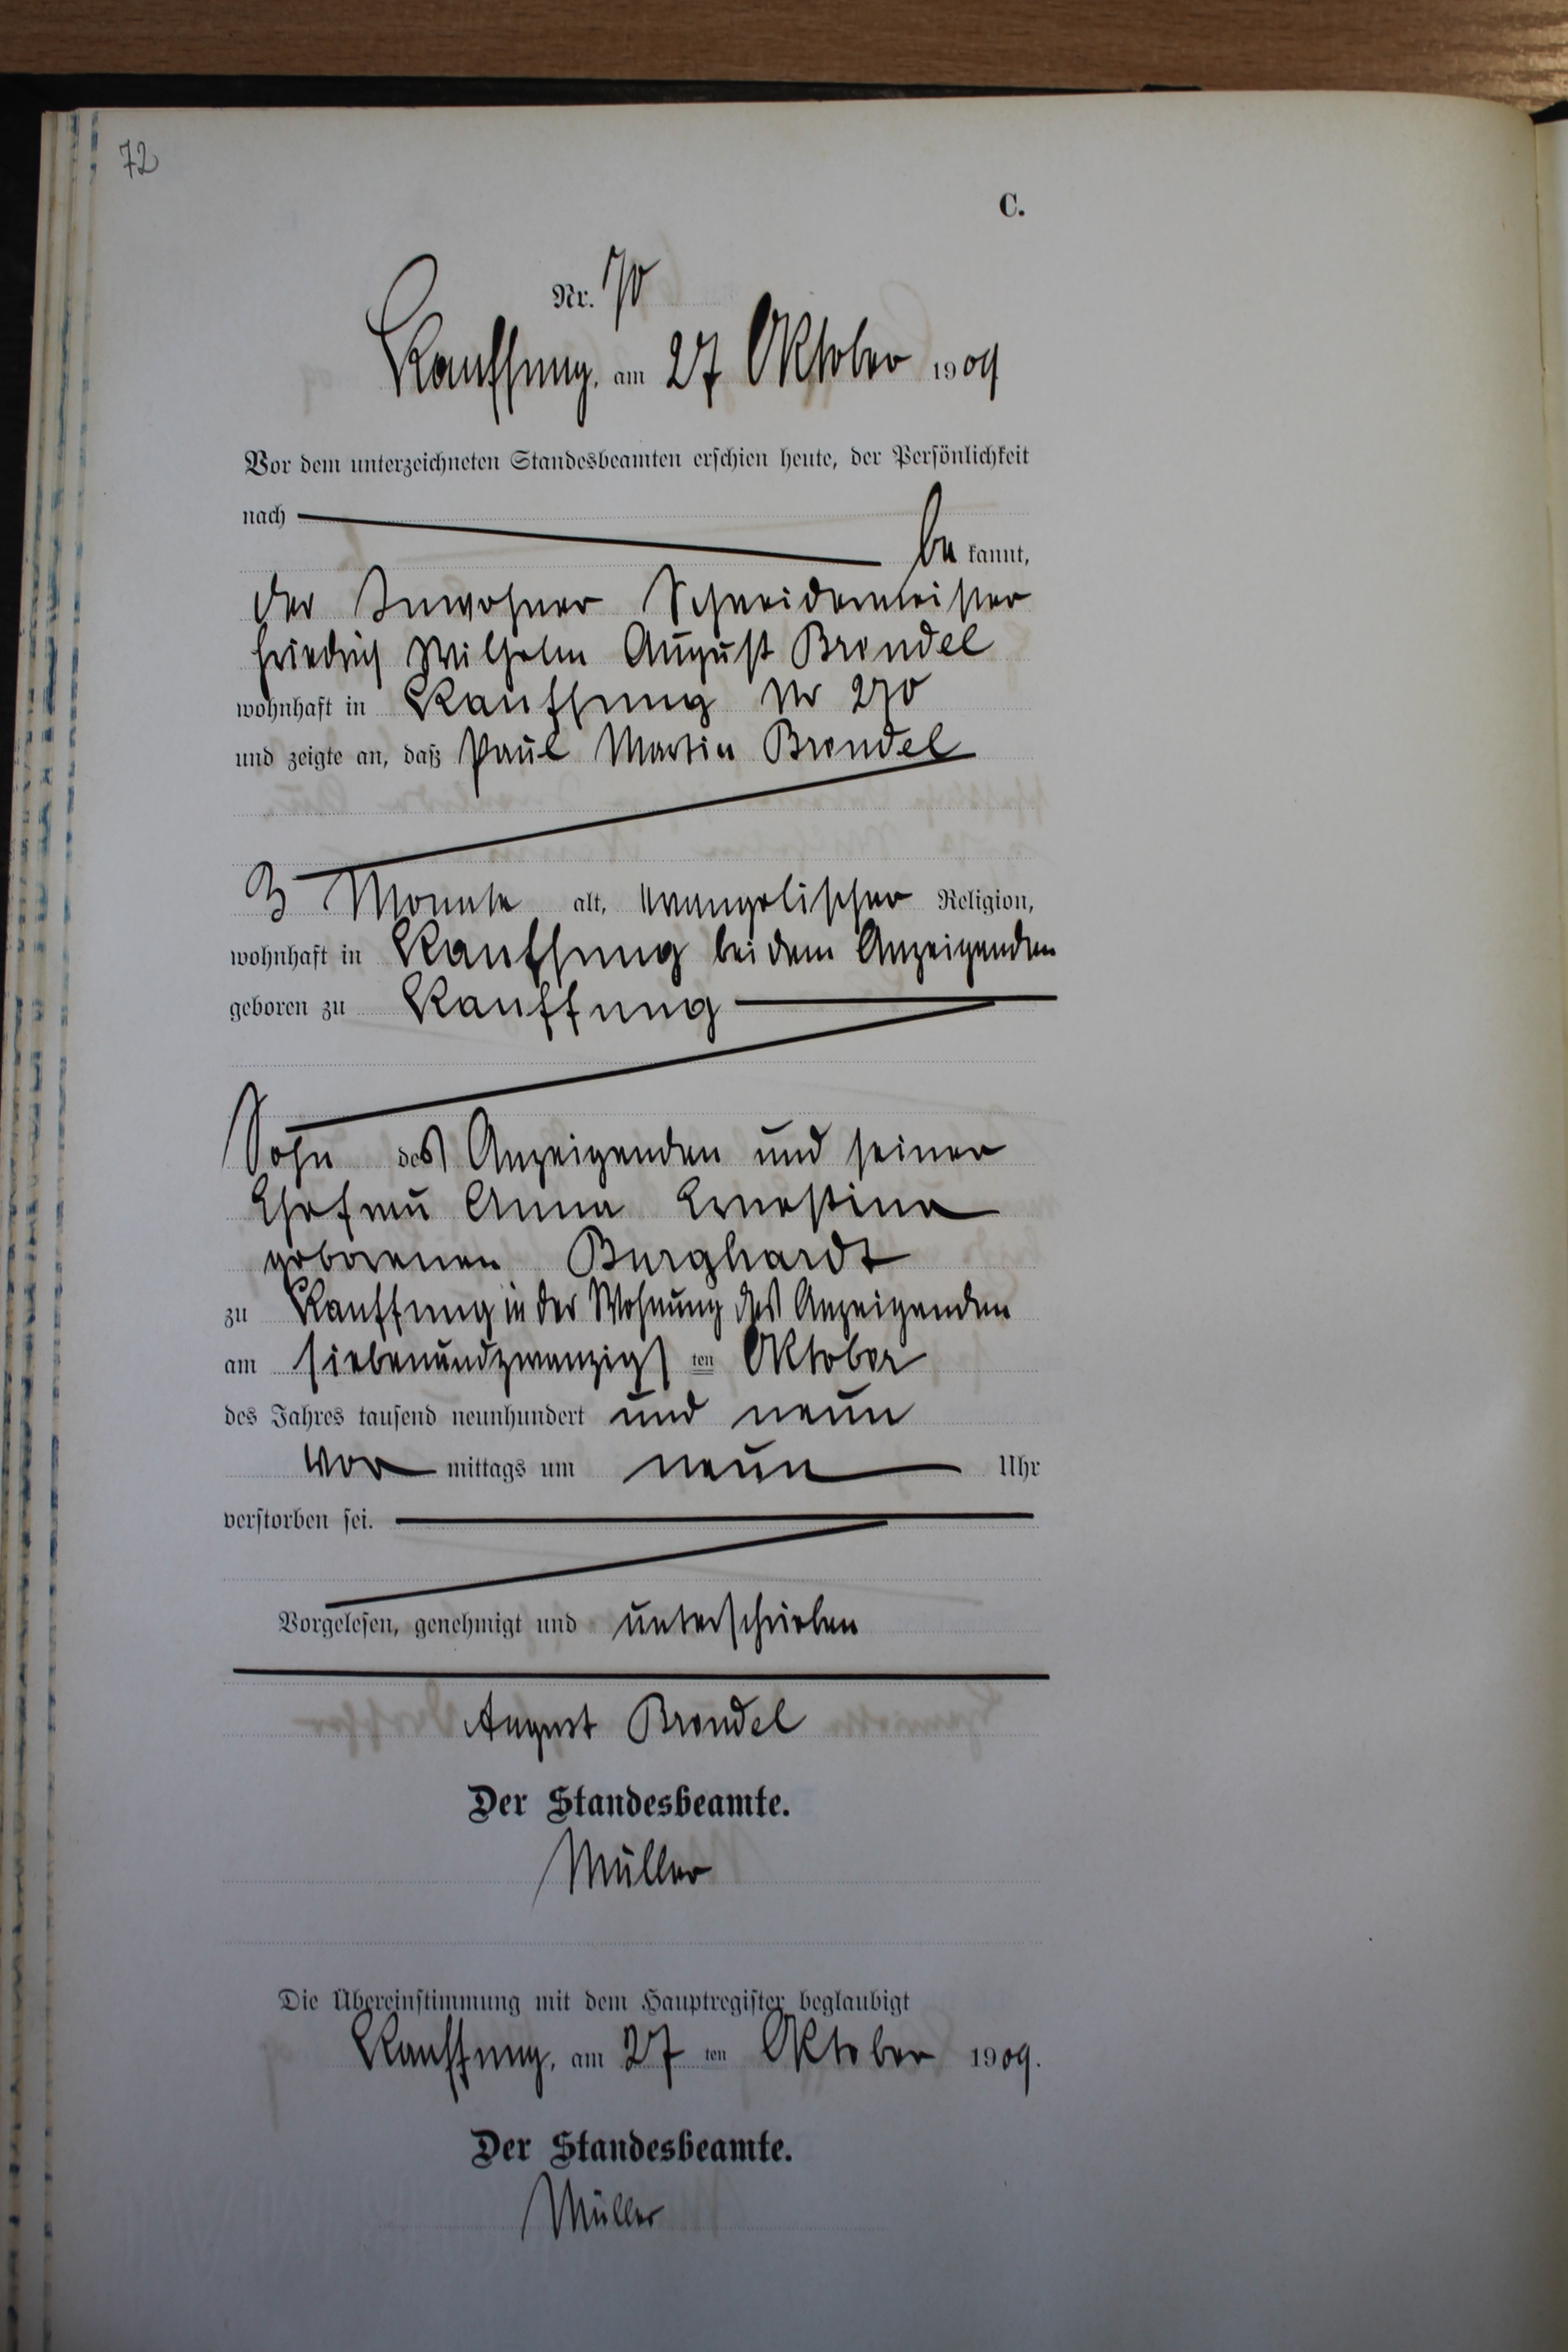 72
C.
Nr. 70
Kauffung, am 27 Oktober 1909
Vor dem unterzeichneten Standesbeamten erschien heute, der Persönlichkeit
nach
be kannt,
der Inwohner Schneidermeister
Friedrich Wilhelm August Brendel
wohnhaft in Kauffung Nr 270
und zeigte an, daß Paul Martin Brendel
3 Monate alt, evangelischer Religion,
wohnhaft in Kauffung bei dem Anzeigenden
geboren zu Kauffung
Sohn des Anzeigenden und seiner
Ehefrau Anna Ernestine
geborenen Burghardt
zu Kauffung in der Wohnung des Anzeigenden
am siebenundzwanzigsten Oktober
des Jahres tausend neunhundert und neun
Vor mittags um neun Uhr
verstorben sei.
Vorgelesen, genehmigt und unterschrieben
August Brendel
Der Standesbeamte.
Müller
Die Übereinstimmung mit dem Hauptregister beglaubigt
Kauffung, am 27 ten Oktober 1909.
Der Standesbeamte.
Müller